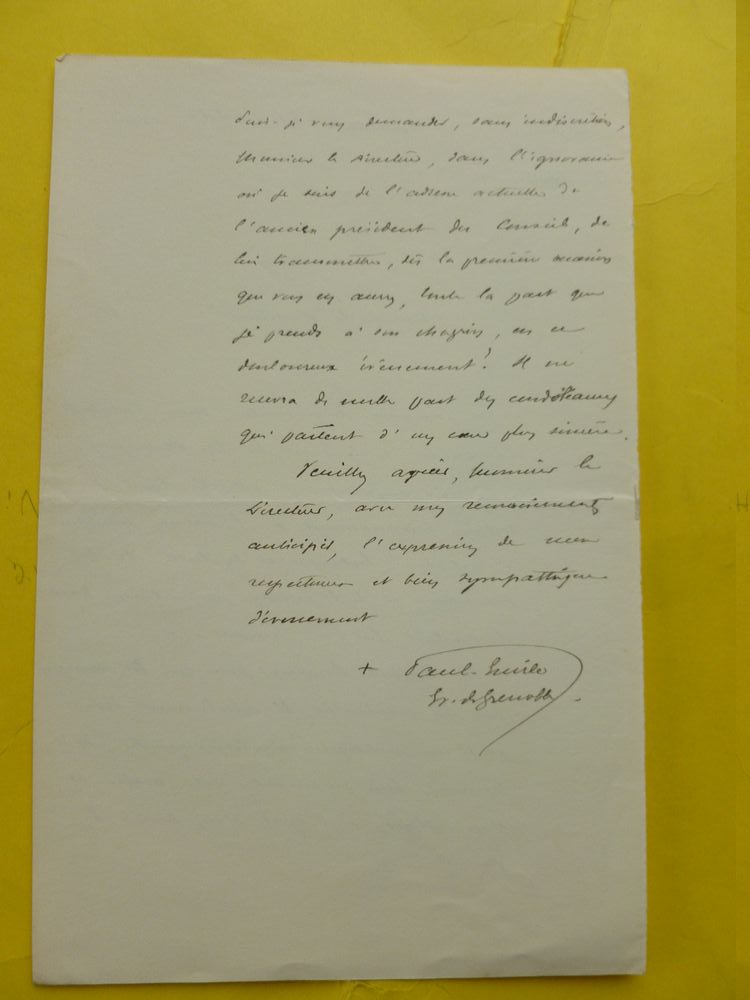 Puis-je vous demander, sans indiscrétion,
Monsieur le Directeur, dans l'ignorance
où je suis de l'adresse actuelle de
l'ancien président du Conseil, de
lui transmettre, dès la première occasion
que vous en aurez, toute la part que
je prends à son chagrin, en ce
douloureux évènement! Il ne
recevra de nulle part des condoléances
qui partent d'un cœur plus sincère.
Veuillez agréer, Monsieur le
Directeur, avec mes remerciements
anticipés, l'expression de mon
respectueux et bien sympathique
dévouement
+ Paul-Emile
Ev. de Grenoble